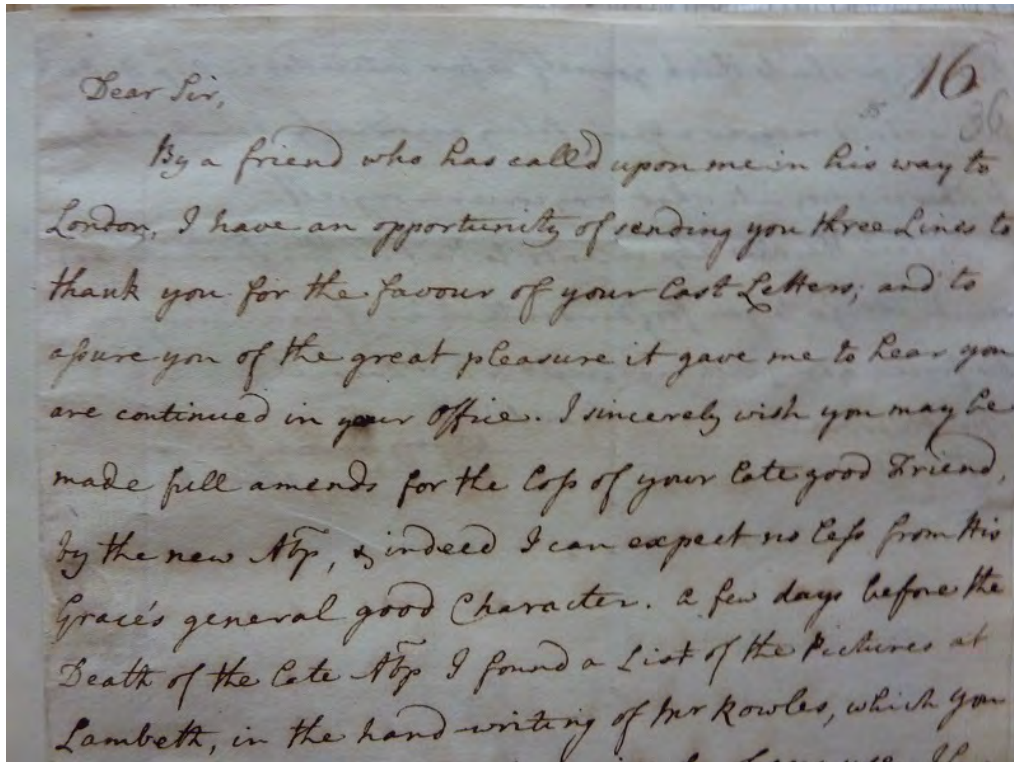 16
36
Dear Sir,
By a friend who has call'd upon me in his way to
London, I have an opportunity of sending you three Lines to
thank you for the favour of your last Letters; and to
aſsure you of the great pleasure it gave me to hear you
are continued in your Office. I sincerely wish you may be
made full amends for the loſs of your late good Friend,
by the new Abp, & indeed I can expect no leſs from His
Grace's general good Character. A few days before the
Death of the late Abp I found a List of the Pictures at
Lambeth, in the hand-writing of Mr Rowles, which you